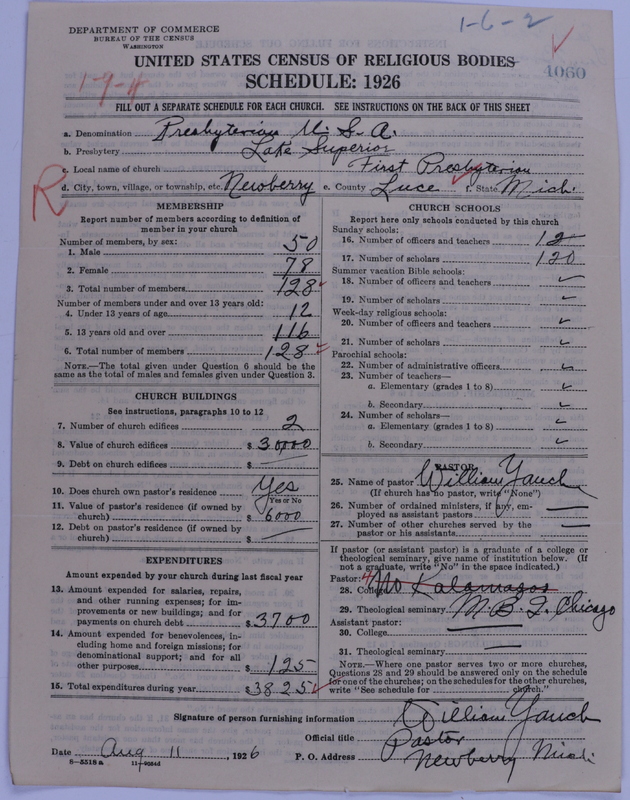 1-6-2
DEPARTMENT OF COMMERCE
BUREAU OF THE CENSUS
WASHINGTON
UNITED STATES CENSUS OF RELIGIOUS BODIES
4060
SCHEDULE: 1926
1-7-4
FILL OUT A SEPARATE SCHEDULE FOR EACH CHURCH. SEE INSTRUCTIONS ON THE BACK OF THIS SHEET
a. Denomination Presbyterian U. S. A.
b. Presbytery Lake Superior
c. Local name of church First Presbyterian
R
d. City, town, village, or township, etc. Newberry e. County Luce f. State Mich.
MEMBERSHIP
Report number of members according to definition of
member in your church
Number of members, by sex:
1. Male 50
2. Female 78
3. Total number of members 128
Number of members under and over 13 years old:
4. Under 13 years of age 12
5. 13 years old and over 116
6. Total number of members 128
NOTE.—The total given under Question 6 should be
same as the total of males and females given under Question 3.
CHURCH BUILDINGS
See instructions, paragraphs 10 to 12
7. Number of church edifices 2
8. Value of church edifices $ 30000
9. Debt on church edifices $
10. Does church own pastor's residence Yes
Yes or No
11. Value of pastor's residence (if owned by
church) $ 6000
12. Debt on pastor's residence (if owned by
church) $
EXPENDITURES
Amount expended by your church during last fiscal year
13. Amount expended for salaries, repairs,
and other running expenses; for im-
provements or new buildings; and for
payments on church debt $ 3700
14. Amount expended for benevolences, in-
cluding home and foreign missions; for
denominational support; and for all
other purposes $ 125
15. Total expenditures during year $ 3825
CHURCH SCHOOLS
Report here only schools conducted by this church
Sunday schools:
16. Number of officers and teachers 12
17. Number of scholars 120
Summer vacation Bible schools:
18. Number of officers and teachers
19. Number of scholars
Week-day religious schools:
20. Number of officers and teachers
21. Number of scholars
Parochial schools:
22. Number of administrative officers
23. Number of teachers—
a. Elementary (grades 1 to 8)
b. Secondary
24. Number of scholars—
a. Elementary (grades 1 to 8)
b. Secondary
PASTOR
25. Name of pastor William Yauch
(If church has no pastor, write "None")
26. Number of ordained ministers, if any, em-
ployed as assistant pastors
27. Number of other churches served by the
pastor or his assistants
If pastor (or assistant pastor) is a graduate of a college or
theological seminary, give name of institution below. (If
not a graduate, write "No" in the space indicated.)
Pastor:
28. College No Kalamazoo
29. Theological seminary M. B. I. Chicago
Assistant pastor:
30. College
31. Theological seminary
NOTE.—Where one pastor serves two or more churches,
Questions 28 and 29 should be answered only on the schedule
for one of the churches; on the schedules for the other churches,
write "See schedule for church."
Signature of person furnishing information William Yauch
Official title Pastor
Date Aug 11, 1926 P. O. Address Newberry Mich
8—5518 a